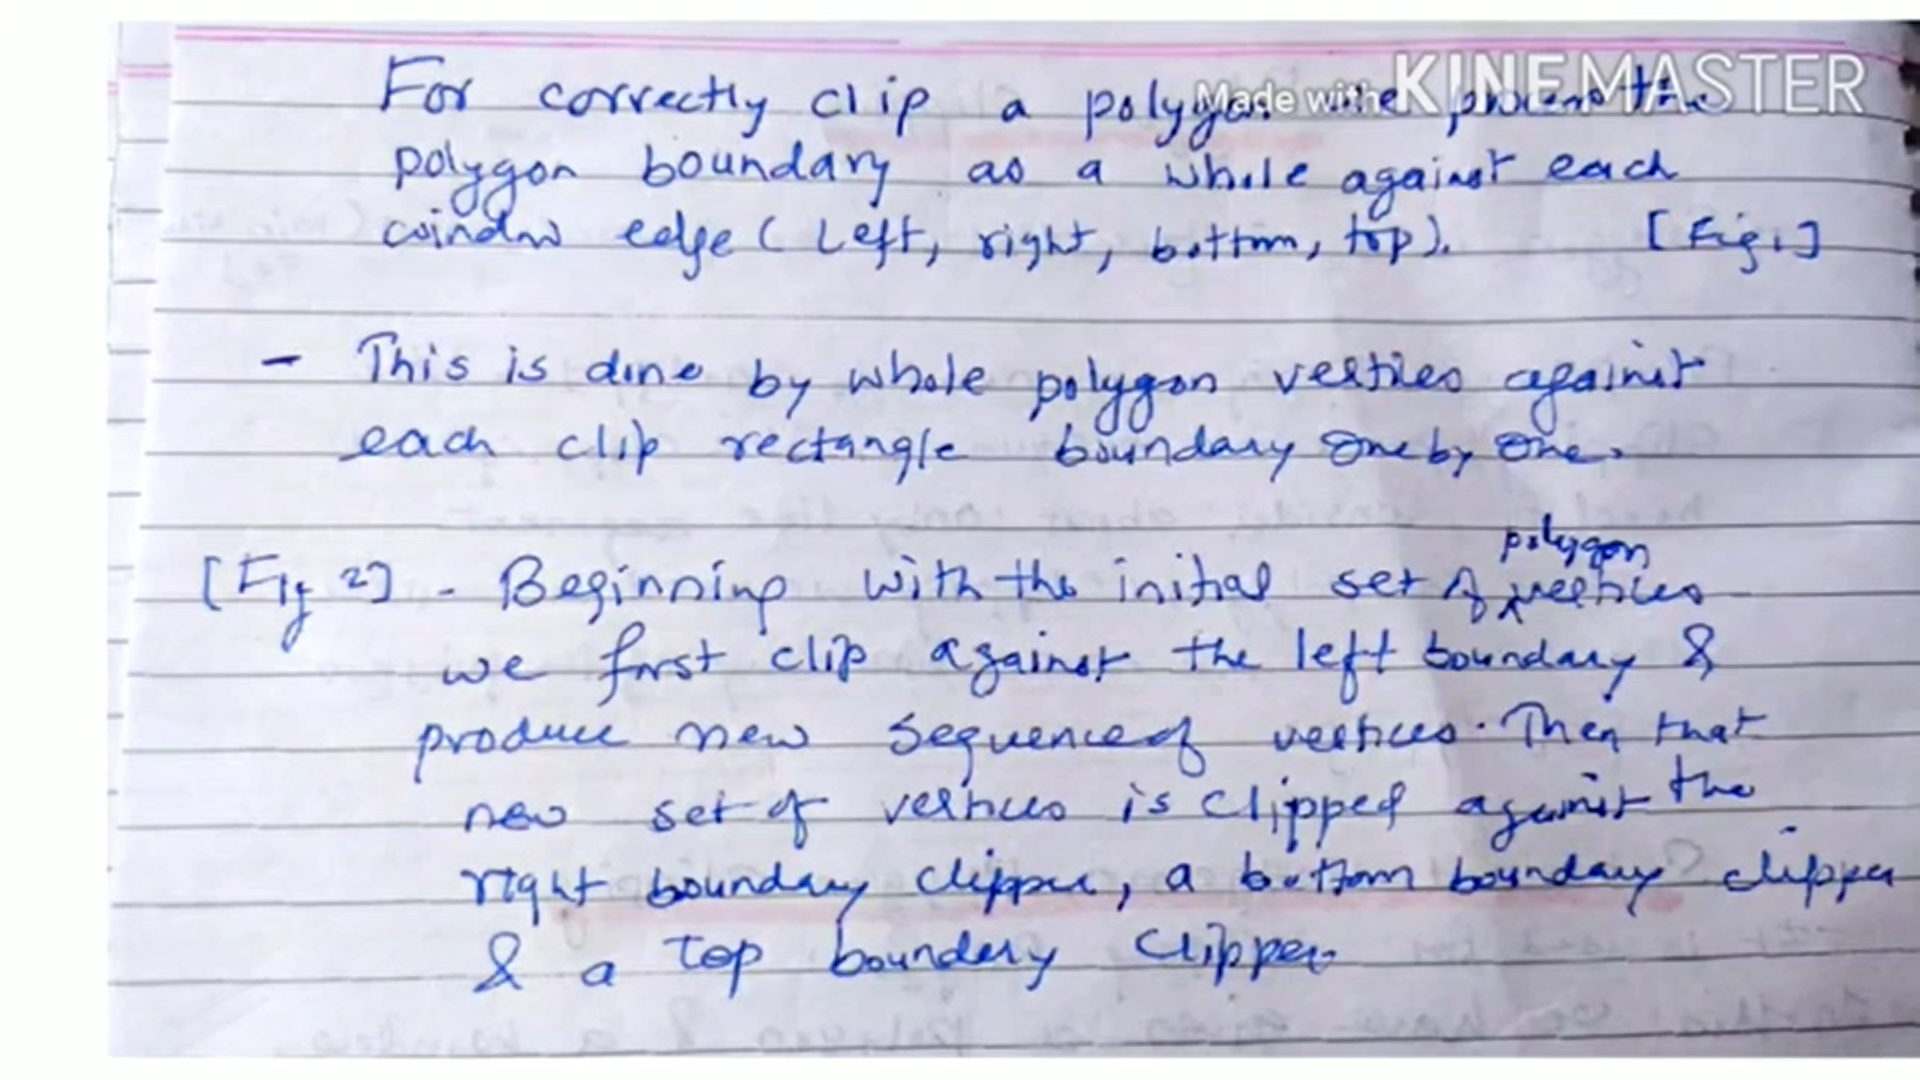 For correctly clip a polygon we process the
Made with KINEMASTER
polygon boundary as a whole against each
window edge (Left, right, bottom, top). [Fig 1]
- This is done by whole polygon vertices against
each clip rectangle boundary one by one.
polygon
[Fig 2] - Beginning with the initial set of vertices
we first clip against the left boundary &
produce new sequence of vertices. Then that
new set of vertices is clipped against the
right boundary clipper, a bottom boundary clipper
& a top boundary clipper.